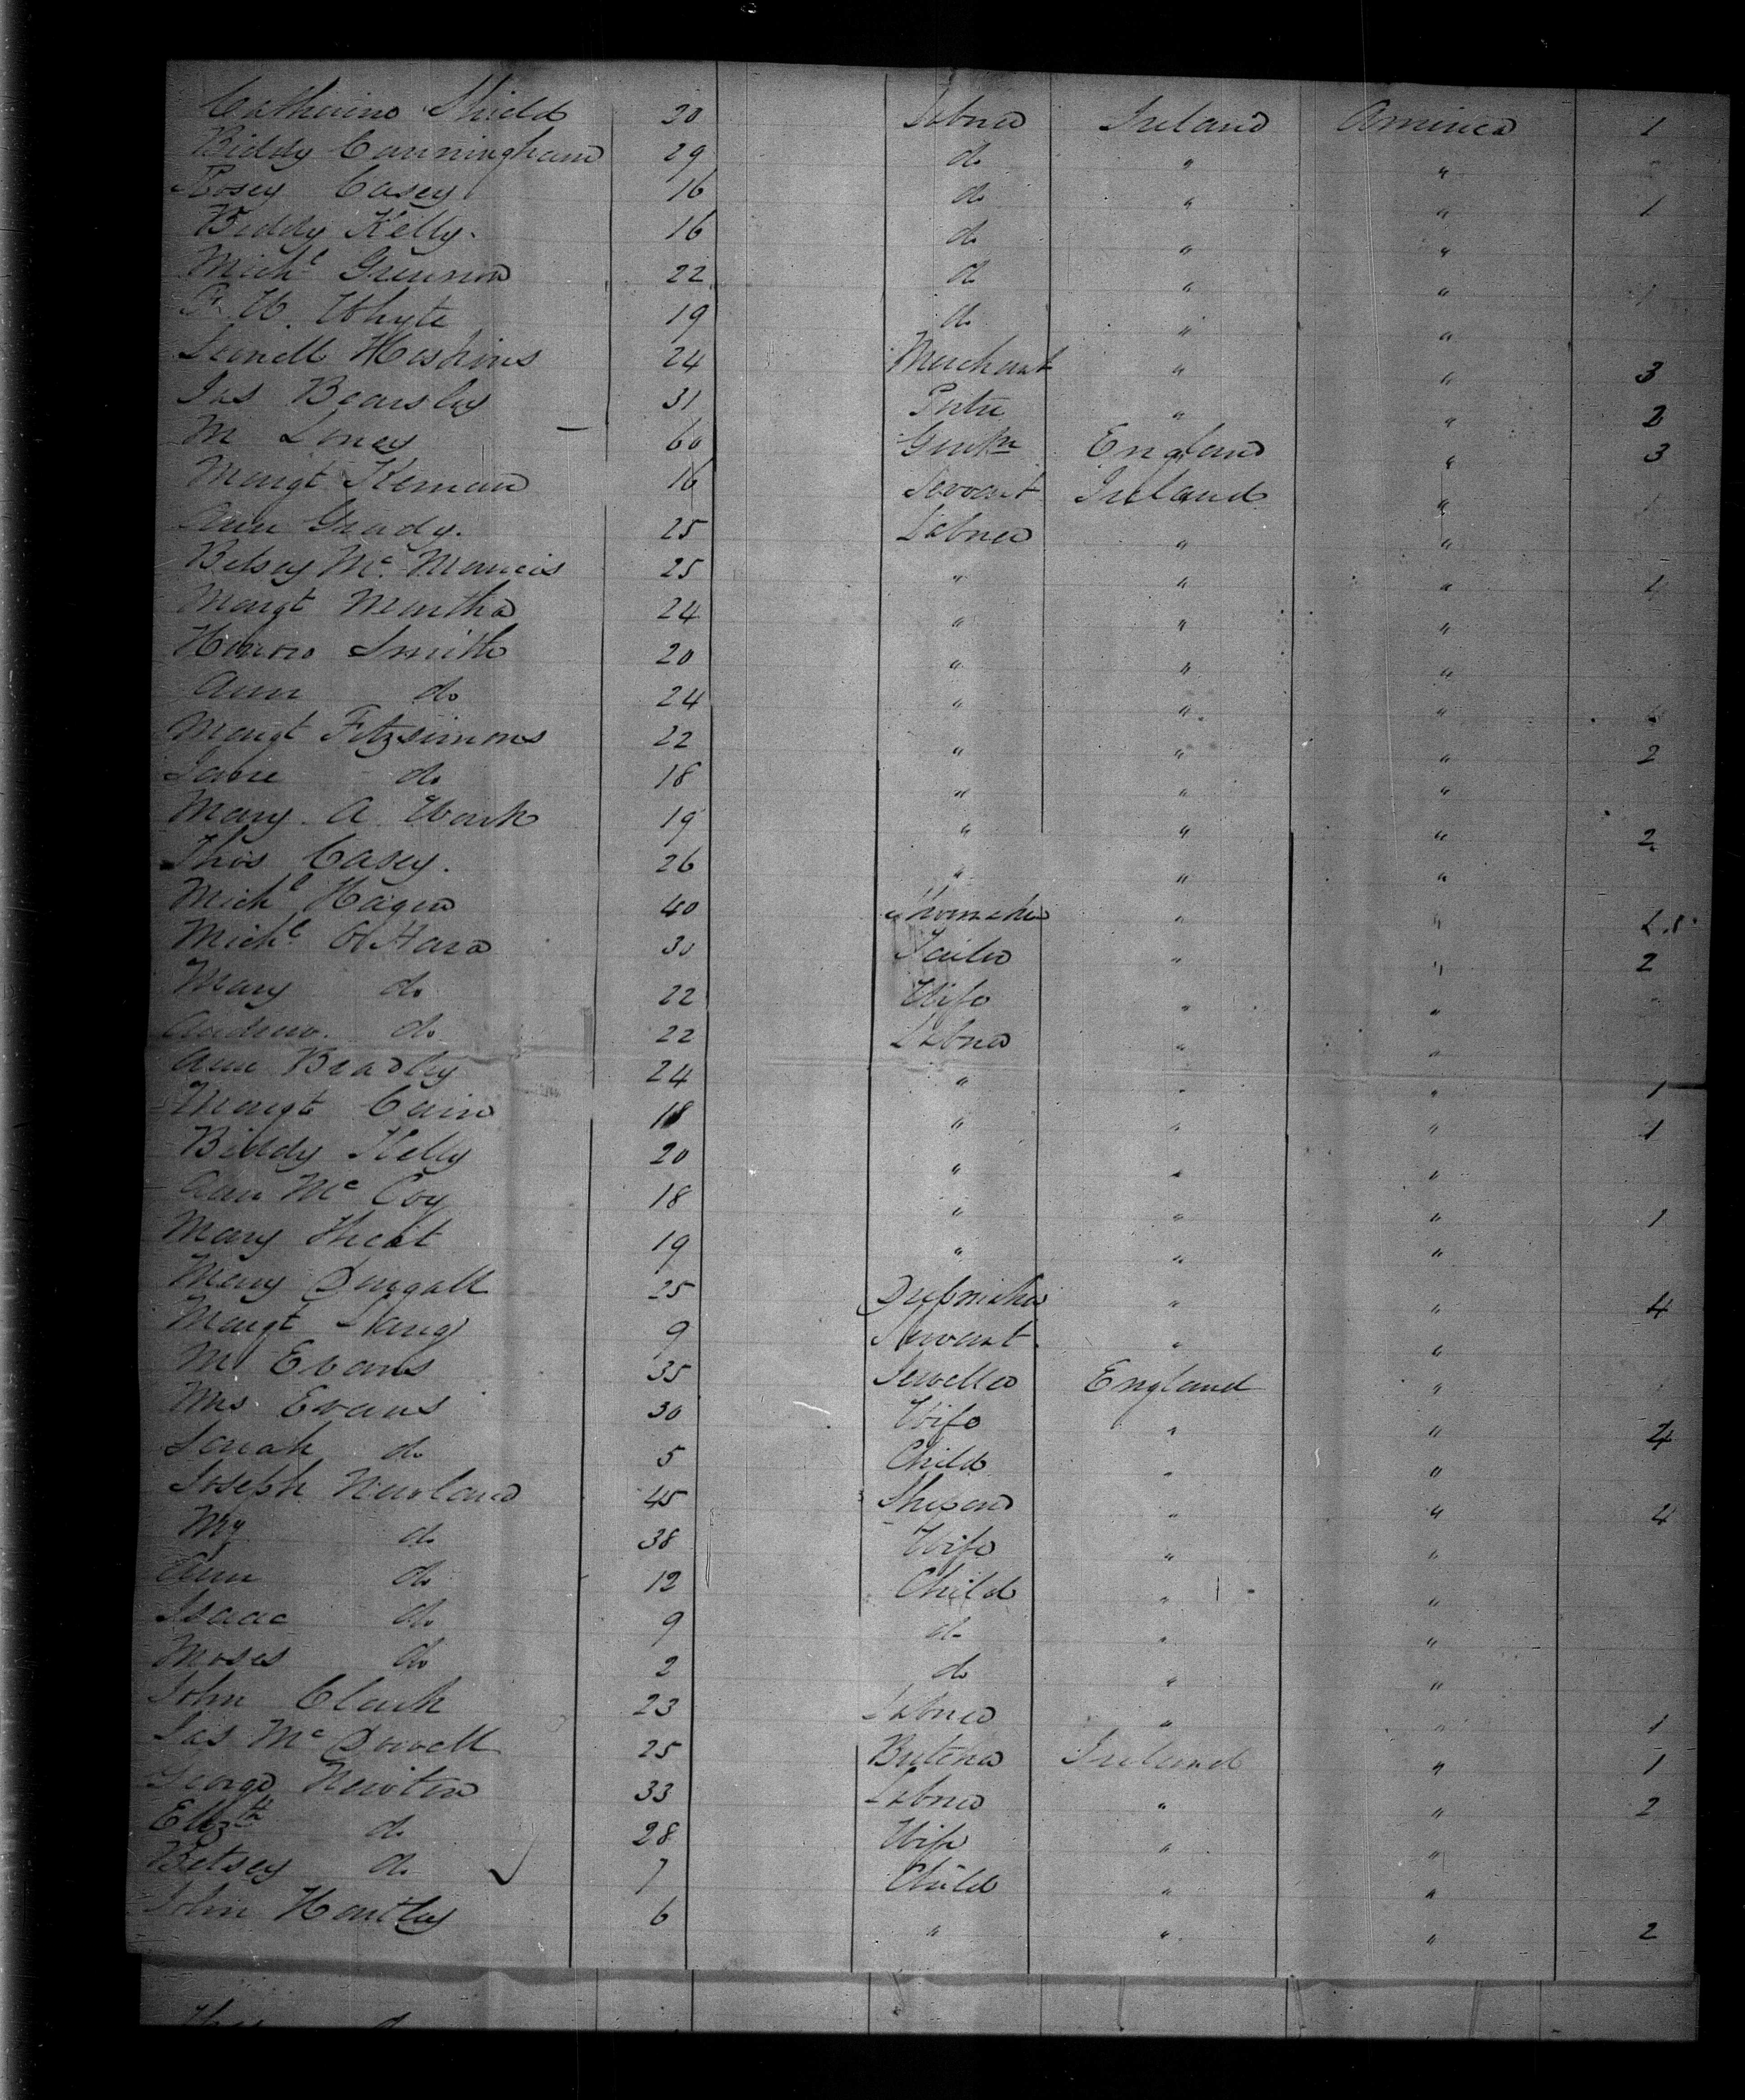 Catherine Shield 30 Labrer Ireland America 1
Biddy Cunningham 29 do " "
Rosey Casey 16 do " " 1
Biddy Kelly. 16 do " "
Michl 22 do " " 1
W. Whyte 19 do " "
Hoskins 24 Merchant " " 3
Jas Bearsley 31 " " 2
M Loney 60 Gentm England " 3
Margt Kernan 16 Servant Ireland "
Ann Grady. 25 Labrer " "
Betsey Mc Manus 25 " " " 1
Margt Murtha 24 " " "
Smith 20 " " "
Ann do 24 " " "
Margt Fitzsimons 22 " " " 2
Jane do 18 " " "
Mary A Wark 19 " " " 2
Thos Casey. 26 " " "
Michl Hagen 40 Shoemaker " "
Michl O'Hara 30 Tailor " " 2
Mary do 22 Wife " "
Andrew. do 22 Labrer " "
Ann Bradley 24 " " " 1
Margt Cain 18 " " " 1
Biddy Kelly 20 " " "
Ann Mc Coy 18 " " " 1
Mary 19 " " "
Mary Dougall 25 " " 4
Margt 9 Servant " "
Mr Evans 35 Jeweller England "
Mrs Evans 30 Wife " " 4
Sarah do 5 Child " "
Joseph Newland 45 " " 4
My do 38 Wife " "
Ann do 12 Child " "
Isaac do 9 do " "
Moses do 2 do " "
John Clark 23 Labrer " " 1
Jas Mc Dowell 25 Butcher Ireland " 1
George Newton 33 Labrer " " 2
Elizth do 28 Wife " "
Betsey do 7 Child " "
John Hartley 6 " " " 2